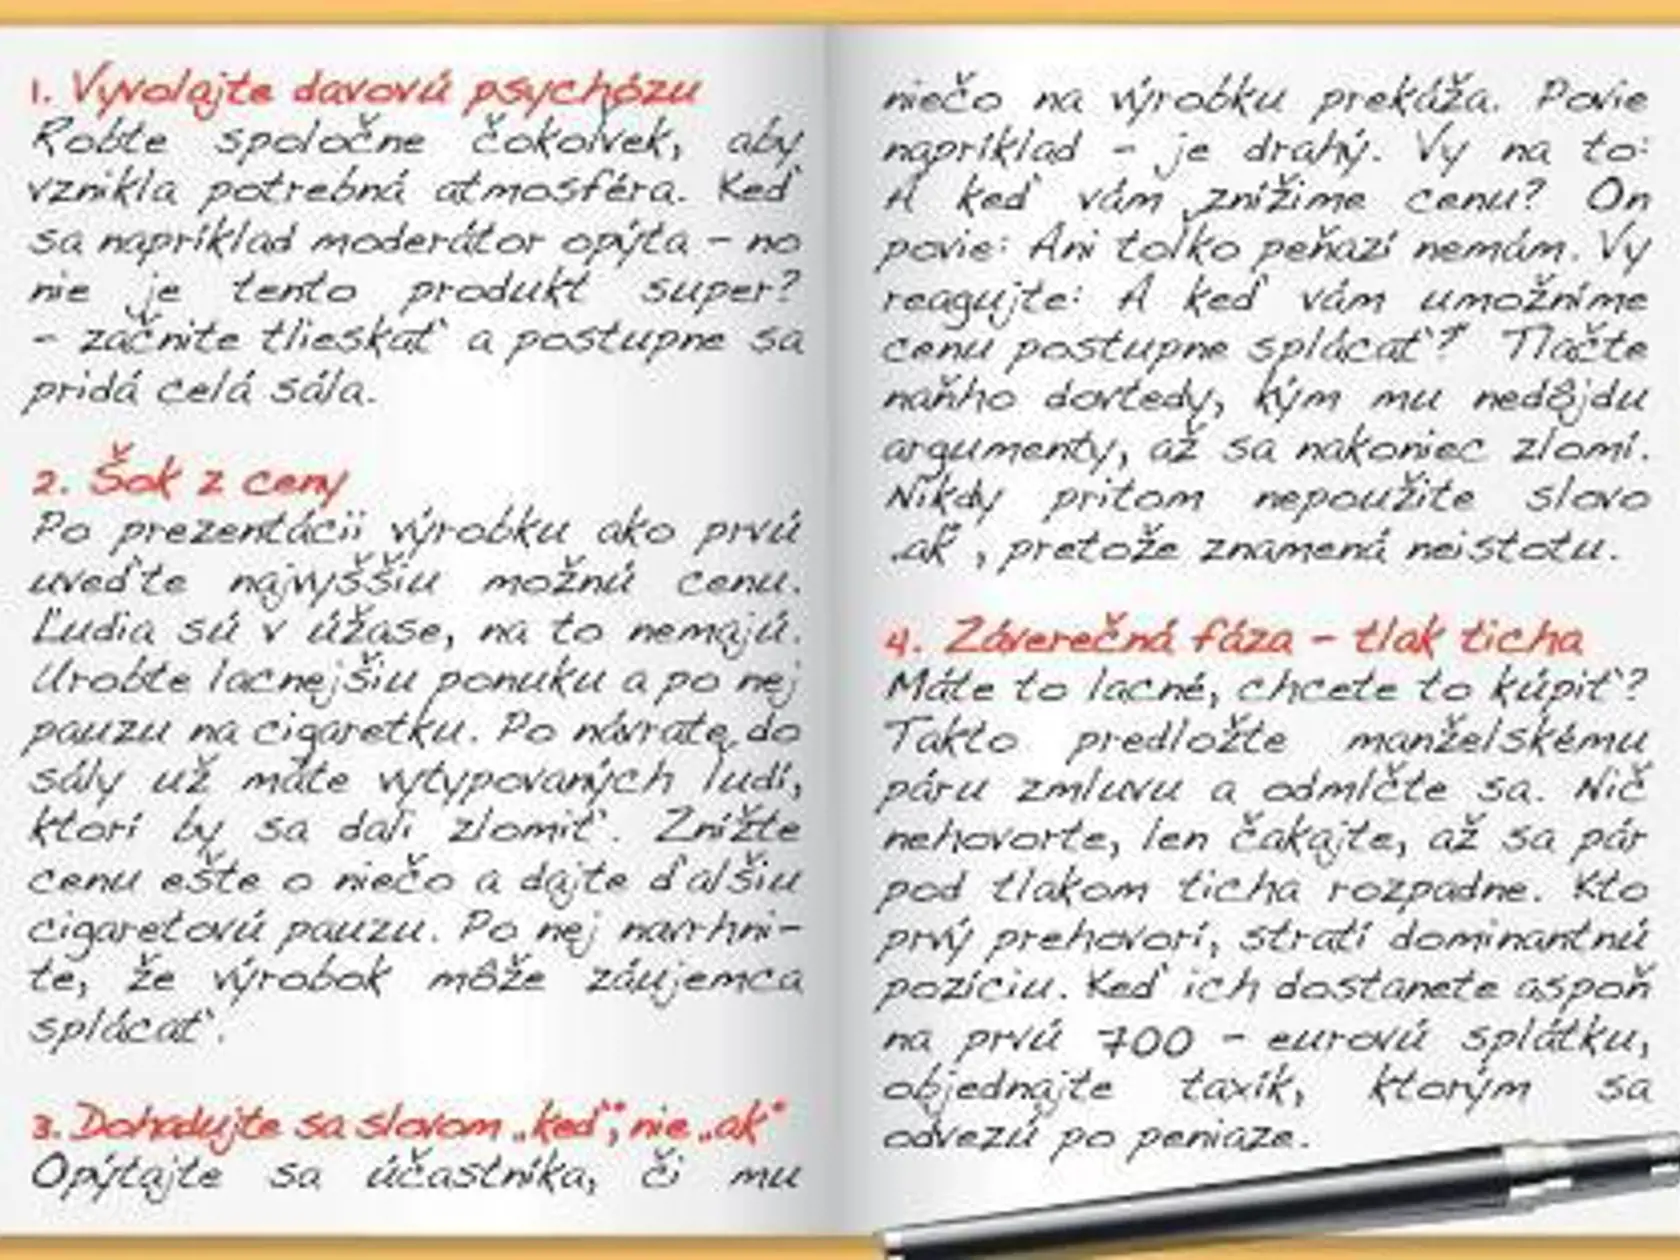 1. Vyvolajte davovú psychózu
Robte spoločne čokoľvek, aby
vznikla potrebná atmosféra. Keď
sa napríklad moderátor opýta - no
nie je tento produkt super?
- začnite tlieskať a postupne sa
pridá celá sála.
2. Šok z ceny
Po prezentácii výrobku ako prvú
uveďte najvyššiu možnú cenu.
Ľudia sú v úžase, na to nemajú.
Urobte lacnejšiu ponuku a po nej
pauzu na cigaretku. Po návrate do
sály už máte vytypovaných ľudí,
ktorí by sa dali zlomiť. Znížte
cenu ešte o niečo a dajte ďalšiu
cigaretovú pauzu. Po nej navrhni-
te, že výrobok môže záujemca
splácať.
3. Dohadujte sa slovom „keď“, nie „ak“
Opýtajte sa účastníka, či mu
niečo na výrobku prekáža. Povie
napríklad - je drahý. Vy na to:
A keď vám znížime cenu? On
povie: Ani toľko peňazí nemám. Vy
reagujte: A keď vám umožníme
cenu postupne splácať?" Tlačte
naňho dovtedy, kým mu nedôjdu
argumenty, až sa nakoniec zlomí.
Nikdy pritom nepoužite slovo
„ak“, pretože znamená neistotu.
4. Záverečná fáza - tlak ticha
Máte to lacné, chcete to kúpiť?
Takto predložte manželskému
páru zmluvu a odmlčte sa. Nič
nehovorte, len čakajte, až sa pár
pod tlakom ticha rozpadne. Kto
prvý prehovorí, stratí dominantnú
pozíciu. Keď ich dostanete aspoň
na prvú 700 - eurovú splátku,
objednajte taxík, ktorým sa
odvezú po peniaze.